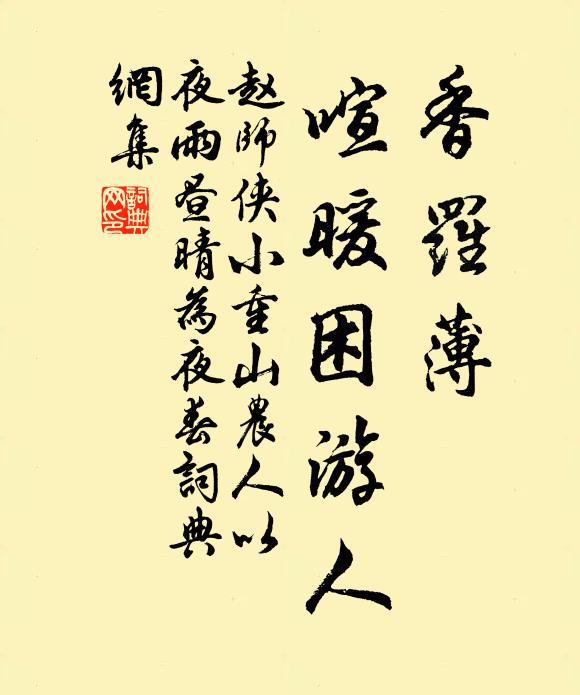 香羅薄
喧暖困游人
赵師侠小重山農人以
夜雨昼晴為夜春詞典
網集
詞典
网印